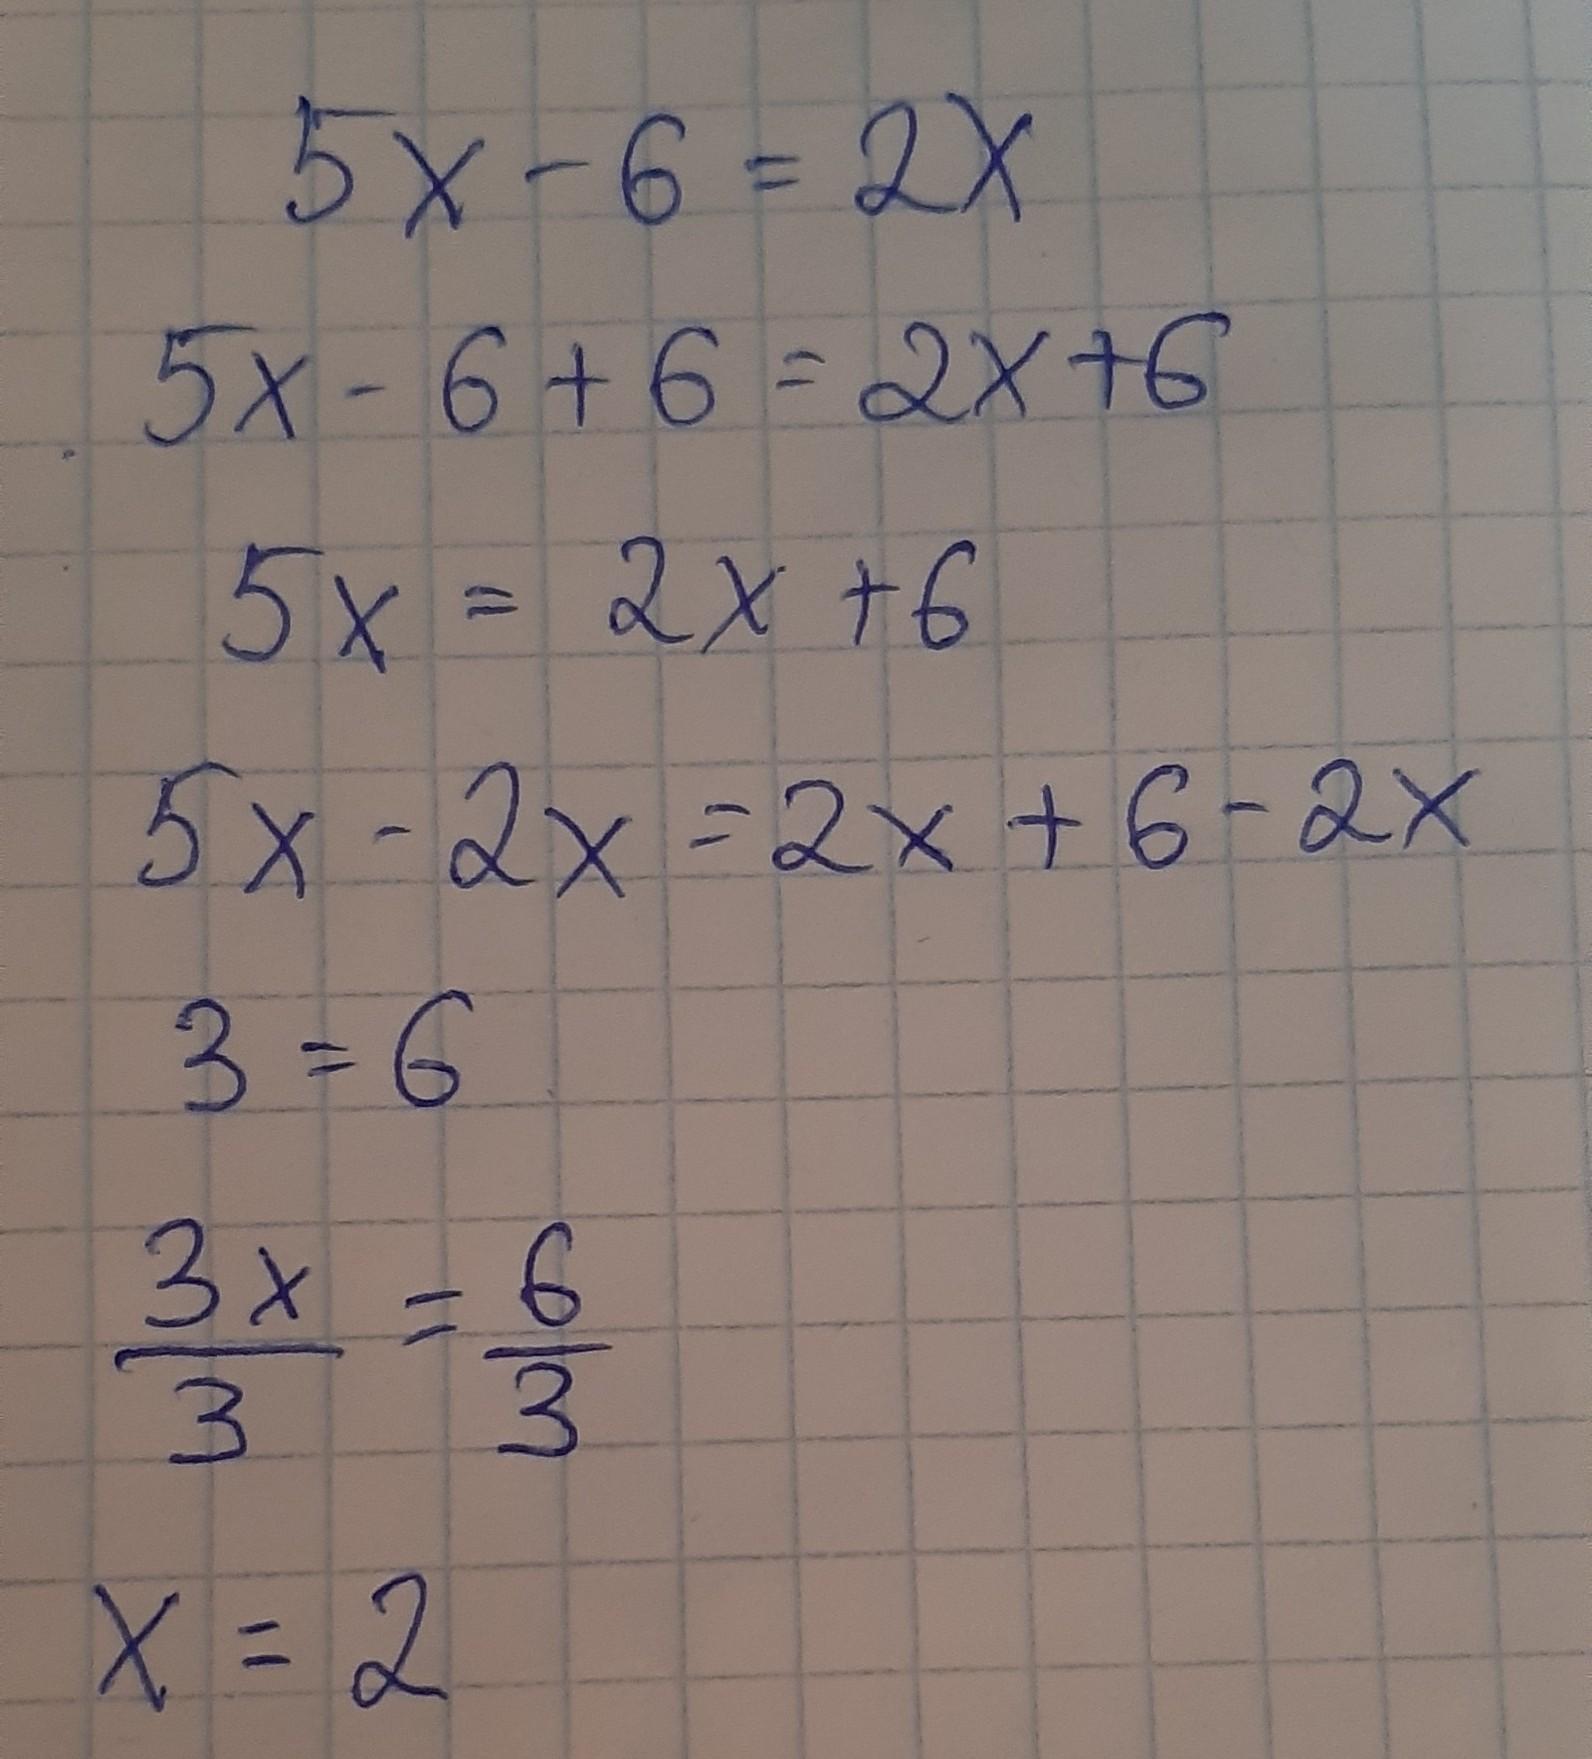 5x - 6 = 2x
5x - 6 + 6 = 2x + 6
5x = 2x + 6
5x - 2x = 2x + 6 - 2x
3 = 6
3x/3 = 6/3
x = 2